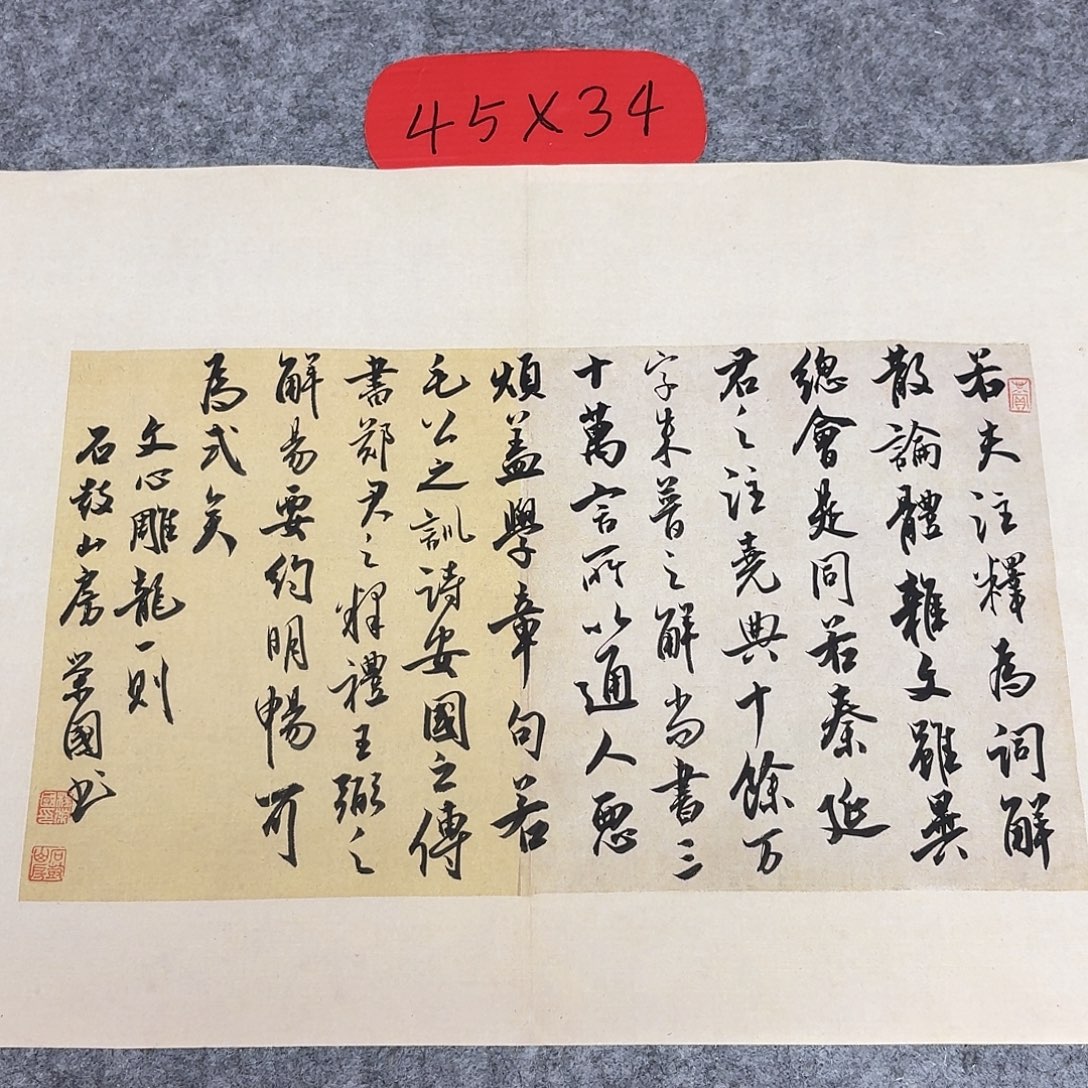 45X34
若夫注釋為詞解
散論體雜文雖異
總會是同若秦延
君之注堯典十餘万
字朱普之解尚書三
十萬言所以通人惡
煩盖學章句若
毛公之訓詩安國之傳
書鄭君之釋禮王弼之
解易要約明暢可
為式矣
文心雕龍一則
石鼓山房榮國书
石鼓山房